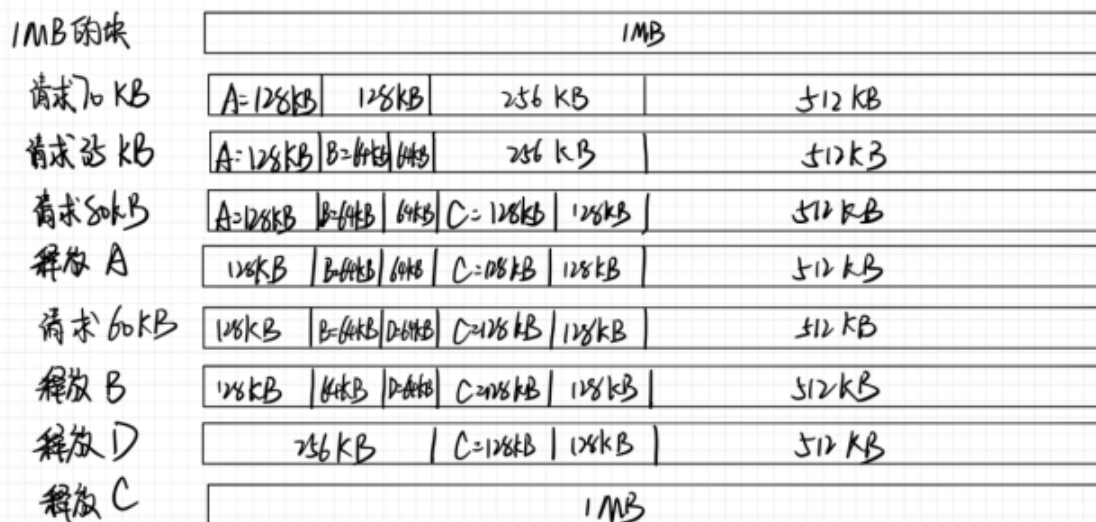 1MB的块 1MB
请求70 KB A=128KB 128KB 256 KB 512 KB
请求35 KB A=128KB B=64KB 64KB 256 KB 512KB
请求80KB A=128KB B=64KB 64KB C=128KB 128KB 512 KB
释放 A 128KB B=64KB 64KB C=128KB 128KB 512 KB
请求 60KB 128KB B=64KB D=64KB C=128KB 128KB 512 KB
释放 B 128KB 64KB D=64KB C=128KB 128KB 512KB
释放 D 256KB C=128KB 128KB 512 KB
释放 C 1MB